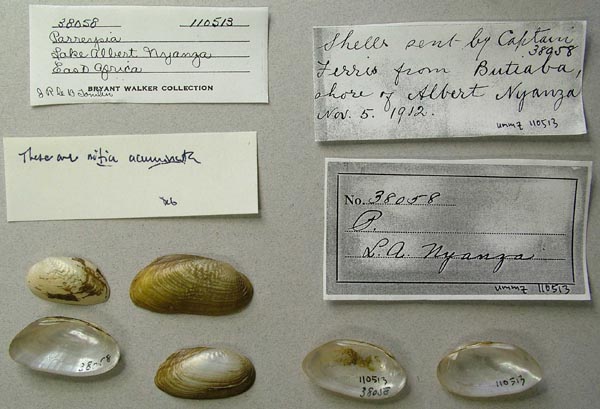 38058 110513
Parreysia
Lake Albert Nyanza
East Africa
BRYANT WALKER COLLECTION
J R le B Tomlin
Shells sent by Captain
38058
Ferris from Butiaba,
shore of Albert Nyanza
Nov. 5. 1912.
ummz 110513
These are
No. 38058
P.
L. A. Nyanza
ummz 110513
38058
110513
38058
110513